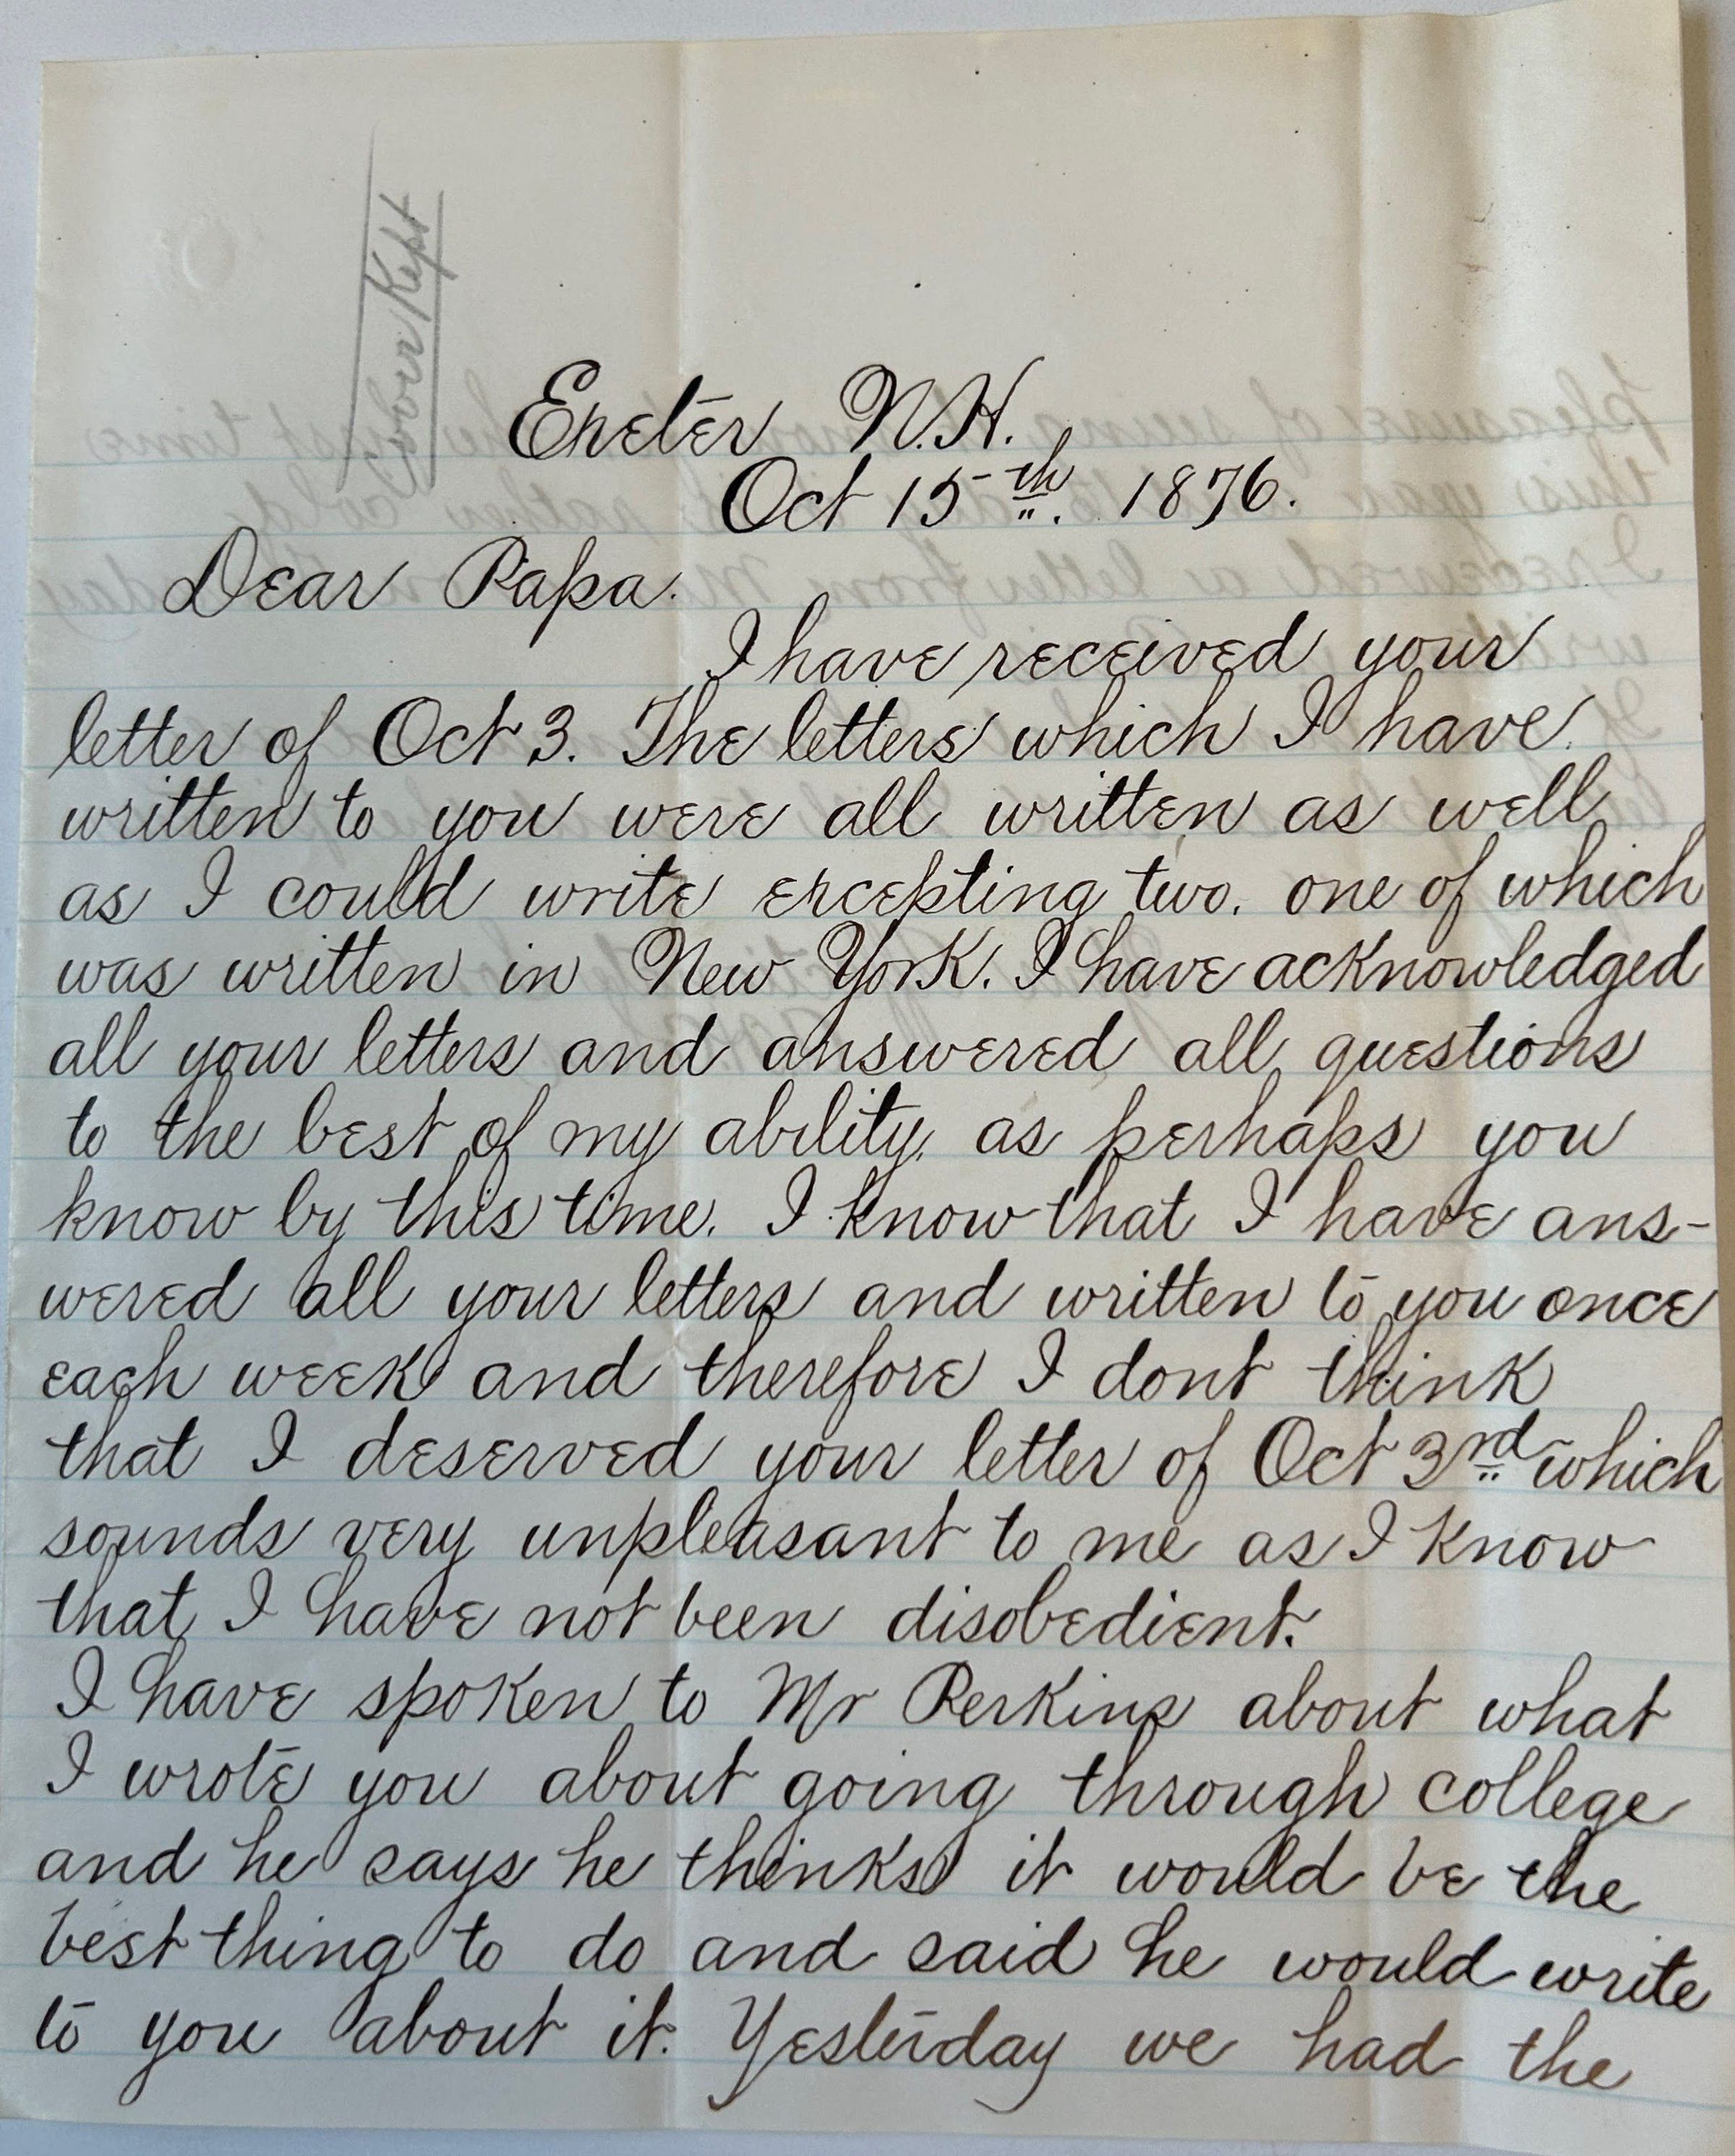 Kept
Exeter N.H.
Oct 15th. 1876.
Dear Papa.
I have received your
letter of Oct 3. The letters which I have
written to you were all written as well
as I could write excepting two. one of which
was written in New York. I have acknowledged
all your letters and answered all questions
to the best of my ability, as perhaps you
know by this time. I know that I have ans-
wered all your letters and written to you once
each week and therefore I dont think
that I deserved your letter of Oct 3rd which
sounds very unpleasant to me as I know
that I have not been disobedient.
I have spoken to Mr Perkins about what
I wrote you about going through college
and he says he thinks it would be the
best thing to do and said he would write
to you about it. Yesterday we had the
pleasure of seeing snow the first time
this year
I received a letter from